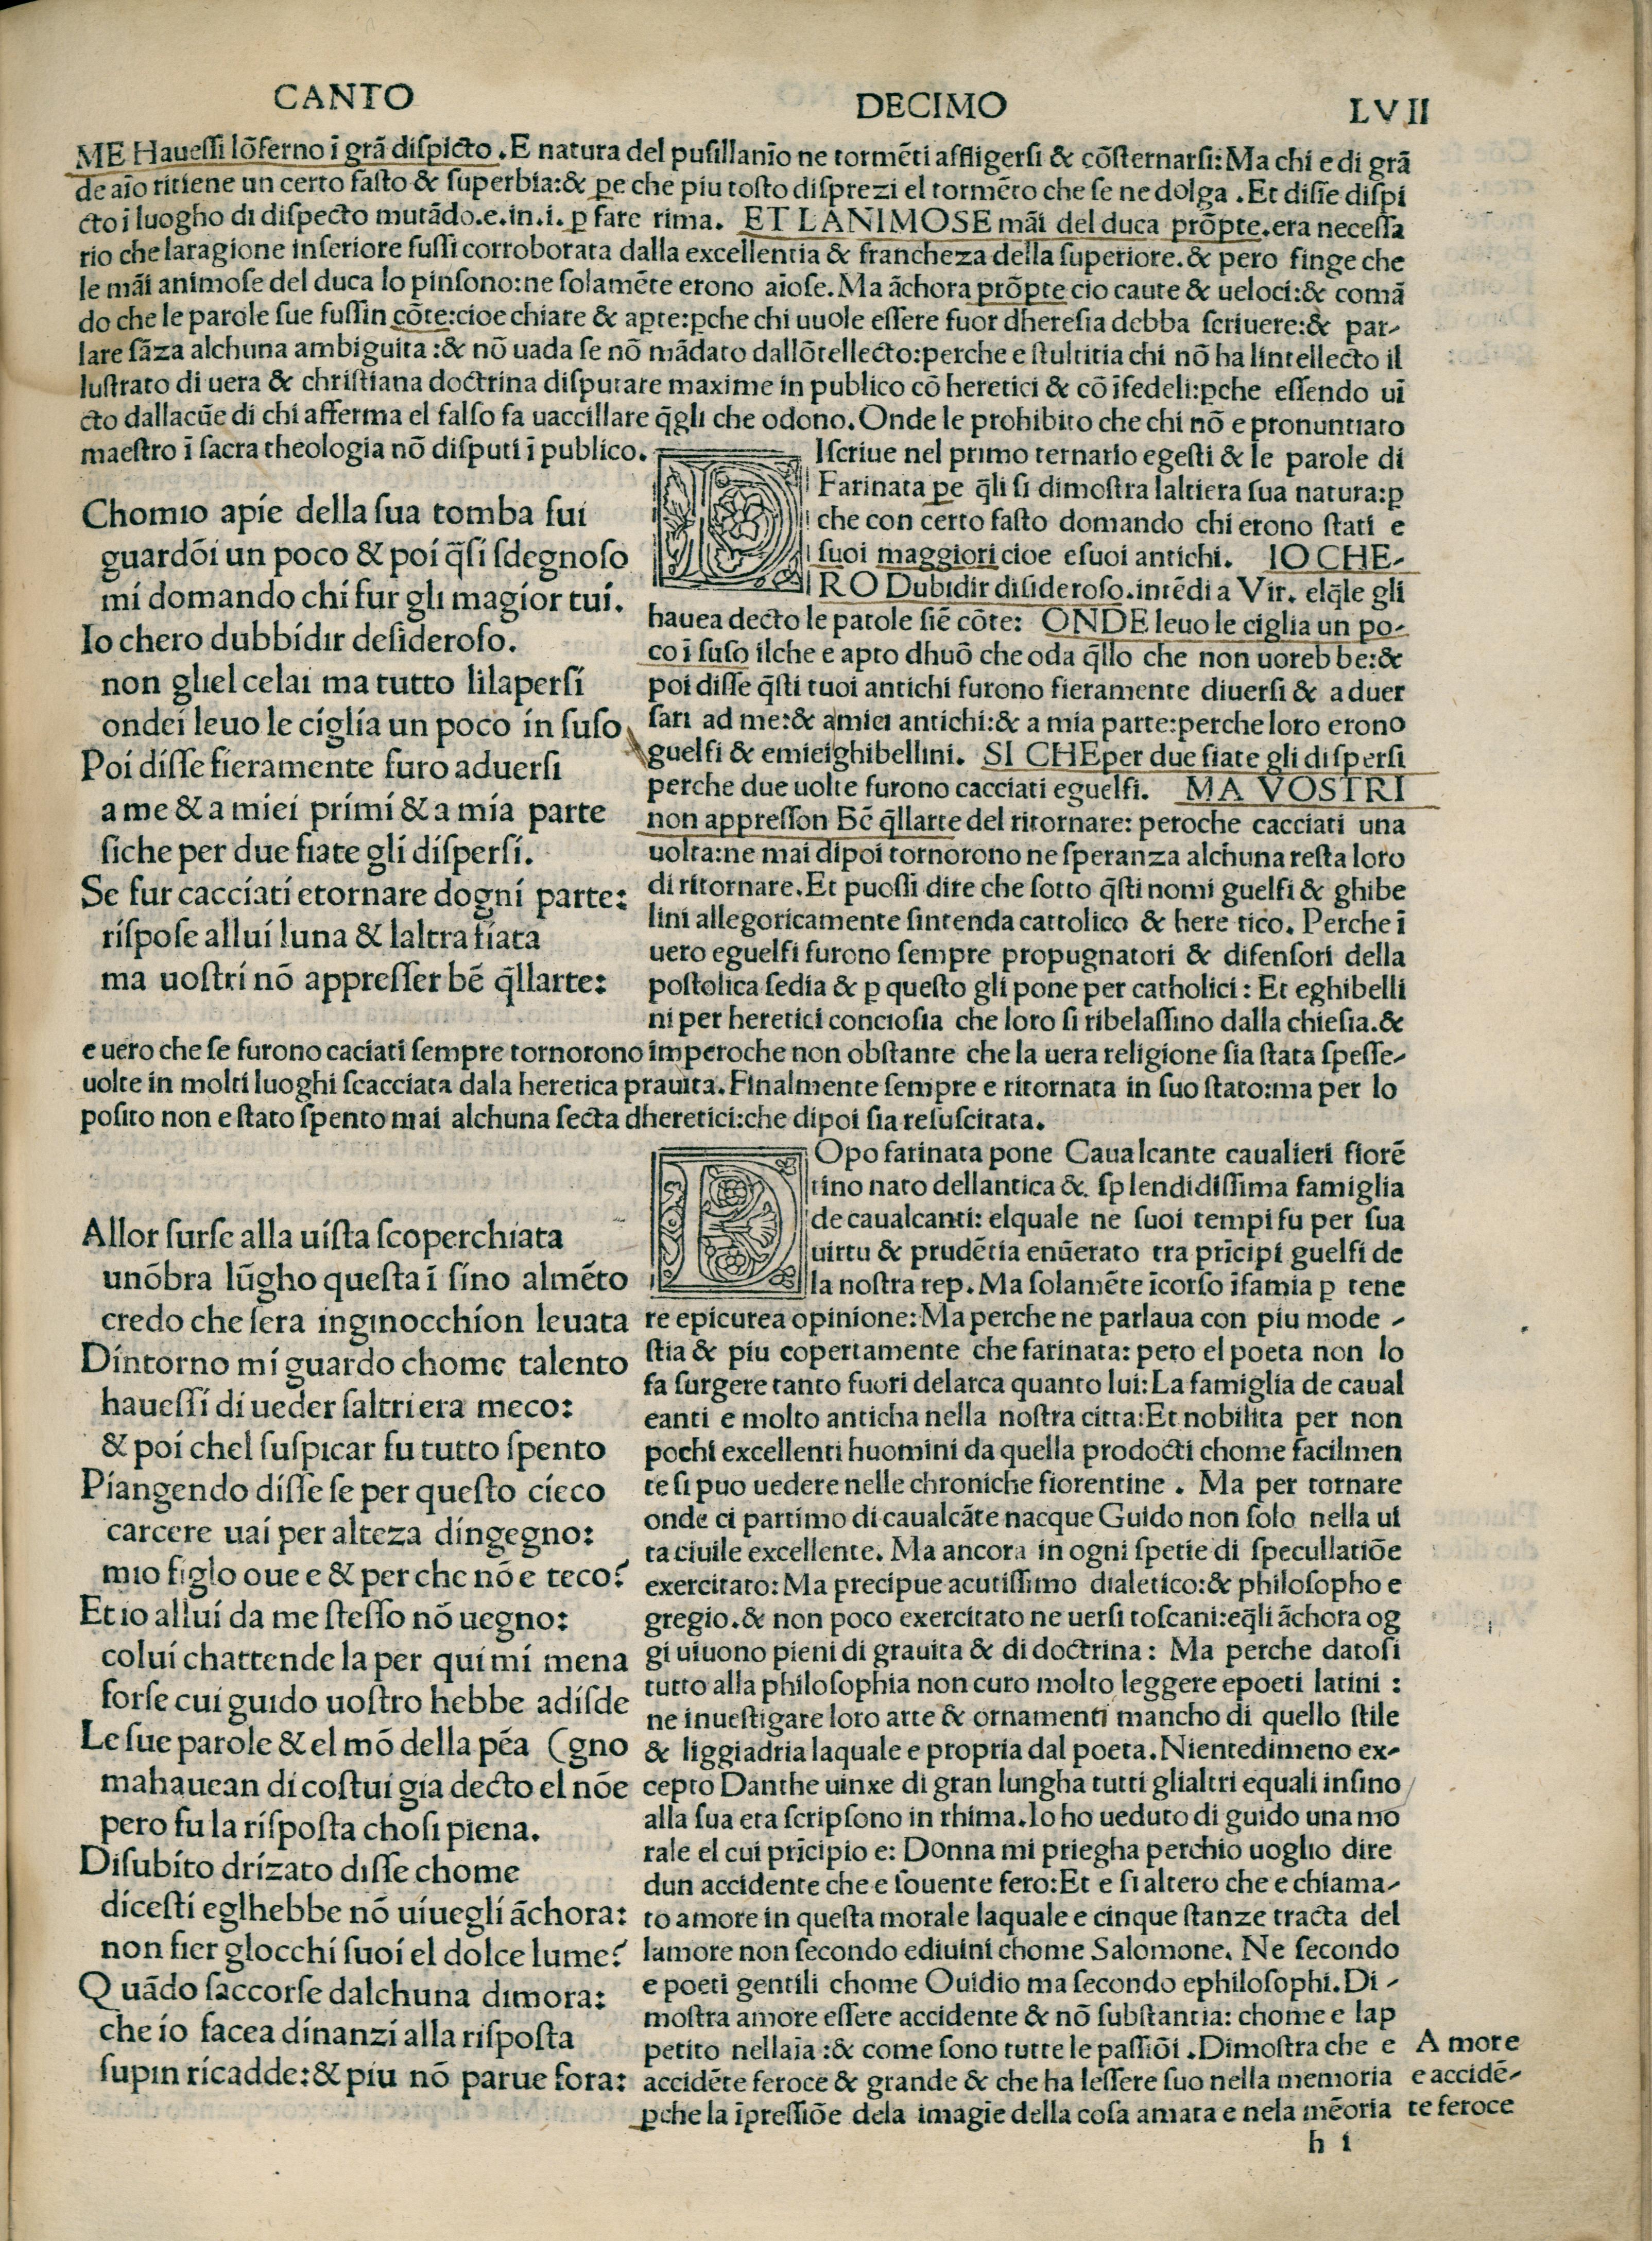 CANTO DECIMO LVII
ME Haueſſi lõferno ĩ grã diſpicto. E natura del puſillanĩo ne tormẽti affligerſi & cõſternarſi: Ma chi e di grã
de aĩo ritiene un certo faſto & ſuperbia: & ꝑe che piu toſto diſprezi el tormẽto che ſe ne dolga. Et diſſe diſpi
cto ĩ luogho di diſpecto mutãdo .e. in .i. ꝑ fare rima. ET LANIMOSE mãi del duca prõpte. era neceſſa
rio che laragione inferiore fuſſi corroborata dalla excellentia & francheza della ſuperiore. & pero finge che
le mãi animoſe del duca lo pinſono: ne ſolamẽte erono aĩoſe. Ma ãchora prõpte cio caute & ueloci: & comã
do che le parole ſue fuſſin cõte: cioe chiare & aꝑte: ꝑche chi uuole eſſere fuor dhereſia debba ſcriuere: & par-
lare ſãza alchuna ambiguita: & nõ uada ſe nõ mãdato dallõtellecto: perche e ſtultitia chi nõ ha lintellecto il
luſtrato di uera & chriſtiana doctrina diſputare maxime in publico cõ heretici & cõ ĩfedeli: ꝑche eſſendo uĩ
cto dallacũe di chi afferma el falſo fa uaccillare q̃gli che odono. Onde le prohibito che chi nõ e pronuntiato
maeſtro ĩ ſacra theologia nõ diſputi ĩ publico.
Chomio apie della ſua tomba fui
guardõi un poco & poi q̃ſi ſdegnoſo
mi domando chi fur gli magior tui.
Io chero dubbidir deſideroſo.
non gliel celai ma tutto lilaperſi
ondei leuo le ciglia un poco in ſuſo
Poi diſſe fieramente furo aduerſi
a me & a miei primi & a mia parte
ſiche per due fiate gli diſperſi.
Se fur cacciati etornare dogni parte:
riſpoſe allui luna & laltra fiata
ma uoſtri nõ appreſſer bẽ q̃llarte:
DIſcriue nel primo ternario egeſti & le parole di
Farinata ꝑe q̃li ſi dimoſtra laltiera ſua natura: ꝑ
che con certo faſto domando chi erono ſtati e
ſuoi maggiori cioe eſuoi antichi. IO CHE-
RO Dubidir diſideroſo. intẽdi a Vir. elq̃le gli
hauea decto le parole ſiẽ cõte: ONDE leuo le ciglia un po-
co ĩ ſuſo ilche e apto dhuõ che oda q̃llo che non uorebbe: &
poi diſſe q̃ſti tuoi antichi furono fieramente diuerſi & aduer
ſari ad me: & amiei antichi: & a mia parte: perche loro erono
guelfi & emiei ghibellini. SI CHE per due fiate gli diſperſi
perche due uolte furono cacciati eguelfi. MA VOSTRI
non appreſſon Bẽ q̃llarte del ritornare: peroche cacciati una
uolta: ne mai dipoi tornorono ne ſperanza alchuna reſta loro
di ritornare. Et puoſſi dire che ſotto q̃ſti nomi guelfi & ghibe
lini allegoricamente ſintenda cattolico & heretico. Perche ĩ
uero eguelfi furono ſempre propugnatori & difenſori della
poſtolica ſedia & ꝑ queſto gli pone per catholici: Et eghibelli
ni per heretici concioſia che loro ſi ribelaſſino dalla chieſia. &
e uero che ſe furono caciati ſempre tornorono imperoche non obſtante che la uera religione ſia ſtata ſpeſſe-
uolte in molti luoghi ſcacciata dala heretica prauita. Finalmente ſempre e ritornata in ſuo ſtato: ma per lo
poſito non e ſtato ſpento mai alchuna ſecta dheretici: che dipoi ſia reſuſcitata.
Allor ſurſe alla uiſta ſcoperchiata
unõbra lũgho queſta ĩ ſino almẽto
credo che ſera inginocchion leuata
Dintorno mi guardo chome talento
haueſſi di ueder ſaltri era meco:
& poi chel ſuſpicar fu tutto ſpento
Piangendo diſſe ſe per queſto cieco
carcere uai per alteza dingegno:
mio figlo oue e & per che nõ e teco?
Et io allui da me ſteſſo nõ uegno:
colui chattende la per qui mi mena
forſe cui guido uoſtro hebbe adiſde
Le ſue parole & el mõ della pẽa (gno
mahauean di coſtui gia decto el nõe
pero fu la riſpoſta choſi piena.
Diſubito drizato diſſe chome
diceſti eglhebbe nõ uiuegli ãchora:
non fier glocchi ſuoi el dolce lume?
Quãdo ſaccorſe dalchuna dimora:
che io facea dinanzi alla riſpoſta
ſupin ricadde: & piu nõ parue fora:
DOpo farinata pone Caualcante caualieri fiorẽ
tino nato dellantica & ſplendidiſſima famiglia
de caualcanti: elquale ne ſuoi tempi fu per ſua
uirtu & prudẽtia enũerato tra prĩcipi guelfi de
la noſtra rep. Ma ſolamẽte ĩcorſo ĩfamia ꝑ tene
re epicurea opinione: Ma perche ne parlaua con piu mode-
ſtia & piu copertamente che farinata: pero el poeta non lo
fa ſurgere tanto fuori delarca quanto lui: La famiglia de caual
eanti e molto anticha nella noſtra citta: Et nobilita per non
pochi excellenti huomini da quella prodocti chome facilmen
te ſi puo uedere nelle chroniche fiorentine. Ma per tornare
onde ci partimo di caualcãte nacque Guido non ſolo nella ui
ta ciuile excellente. Ma ancora in ogni ſpetie di ſpecullatiõe
exercitato: Ma precipue acutiſſimo dialetico: & philoſopho e
gregio. & non poco exercitato ne uerſi toſcani: eq̃li ãchora og
gi uiuono pieni di grauita & di doctrina: Ma perche datoſi
tutto alla philoſophia non curo molto leggere epoeti latini:
ne inueſtigare loro arte & ornamenti mancho di quello ſtile
& liggiadria laquale e propria dal poeta. Nientedimeno ex-
cepto Danthe uinxe di gran lungha tutti glialtri equali inſino
alla ſua eta ſcripſono in rhima. Io ho ueduto di guido una mo
rale el cui prĩcipio e: Donna mi priegha perchio uoglio dire
dun accidente che e ſouente fero: Et e ſi altero che e chiama-
to amore in queſta morale laquale e cinque ſtanze tracta del
lamore non ſecondo ediuini chome Salomone. Ne ſecondo
e poeti gentili chome Ouidio ma ſecondo ephiloſophi. Di-
moſtra amore eſſere accidente & nõ ſubſtantia: chome e lap
petito nellaĩa: & come ſono tutte le paſſiõi. Dimoſtra che e
accidẽte feroce & grande & che ha leſſere ſuo nella memoria
ꝑche la ĩpreſſiõe dela imagĩe della coſa amata e nela mẽoria
Amore
e accidẽ-
te feroce
h i